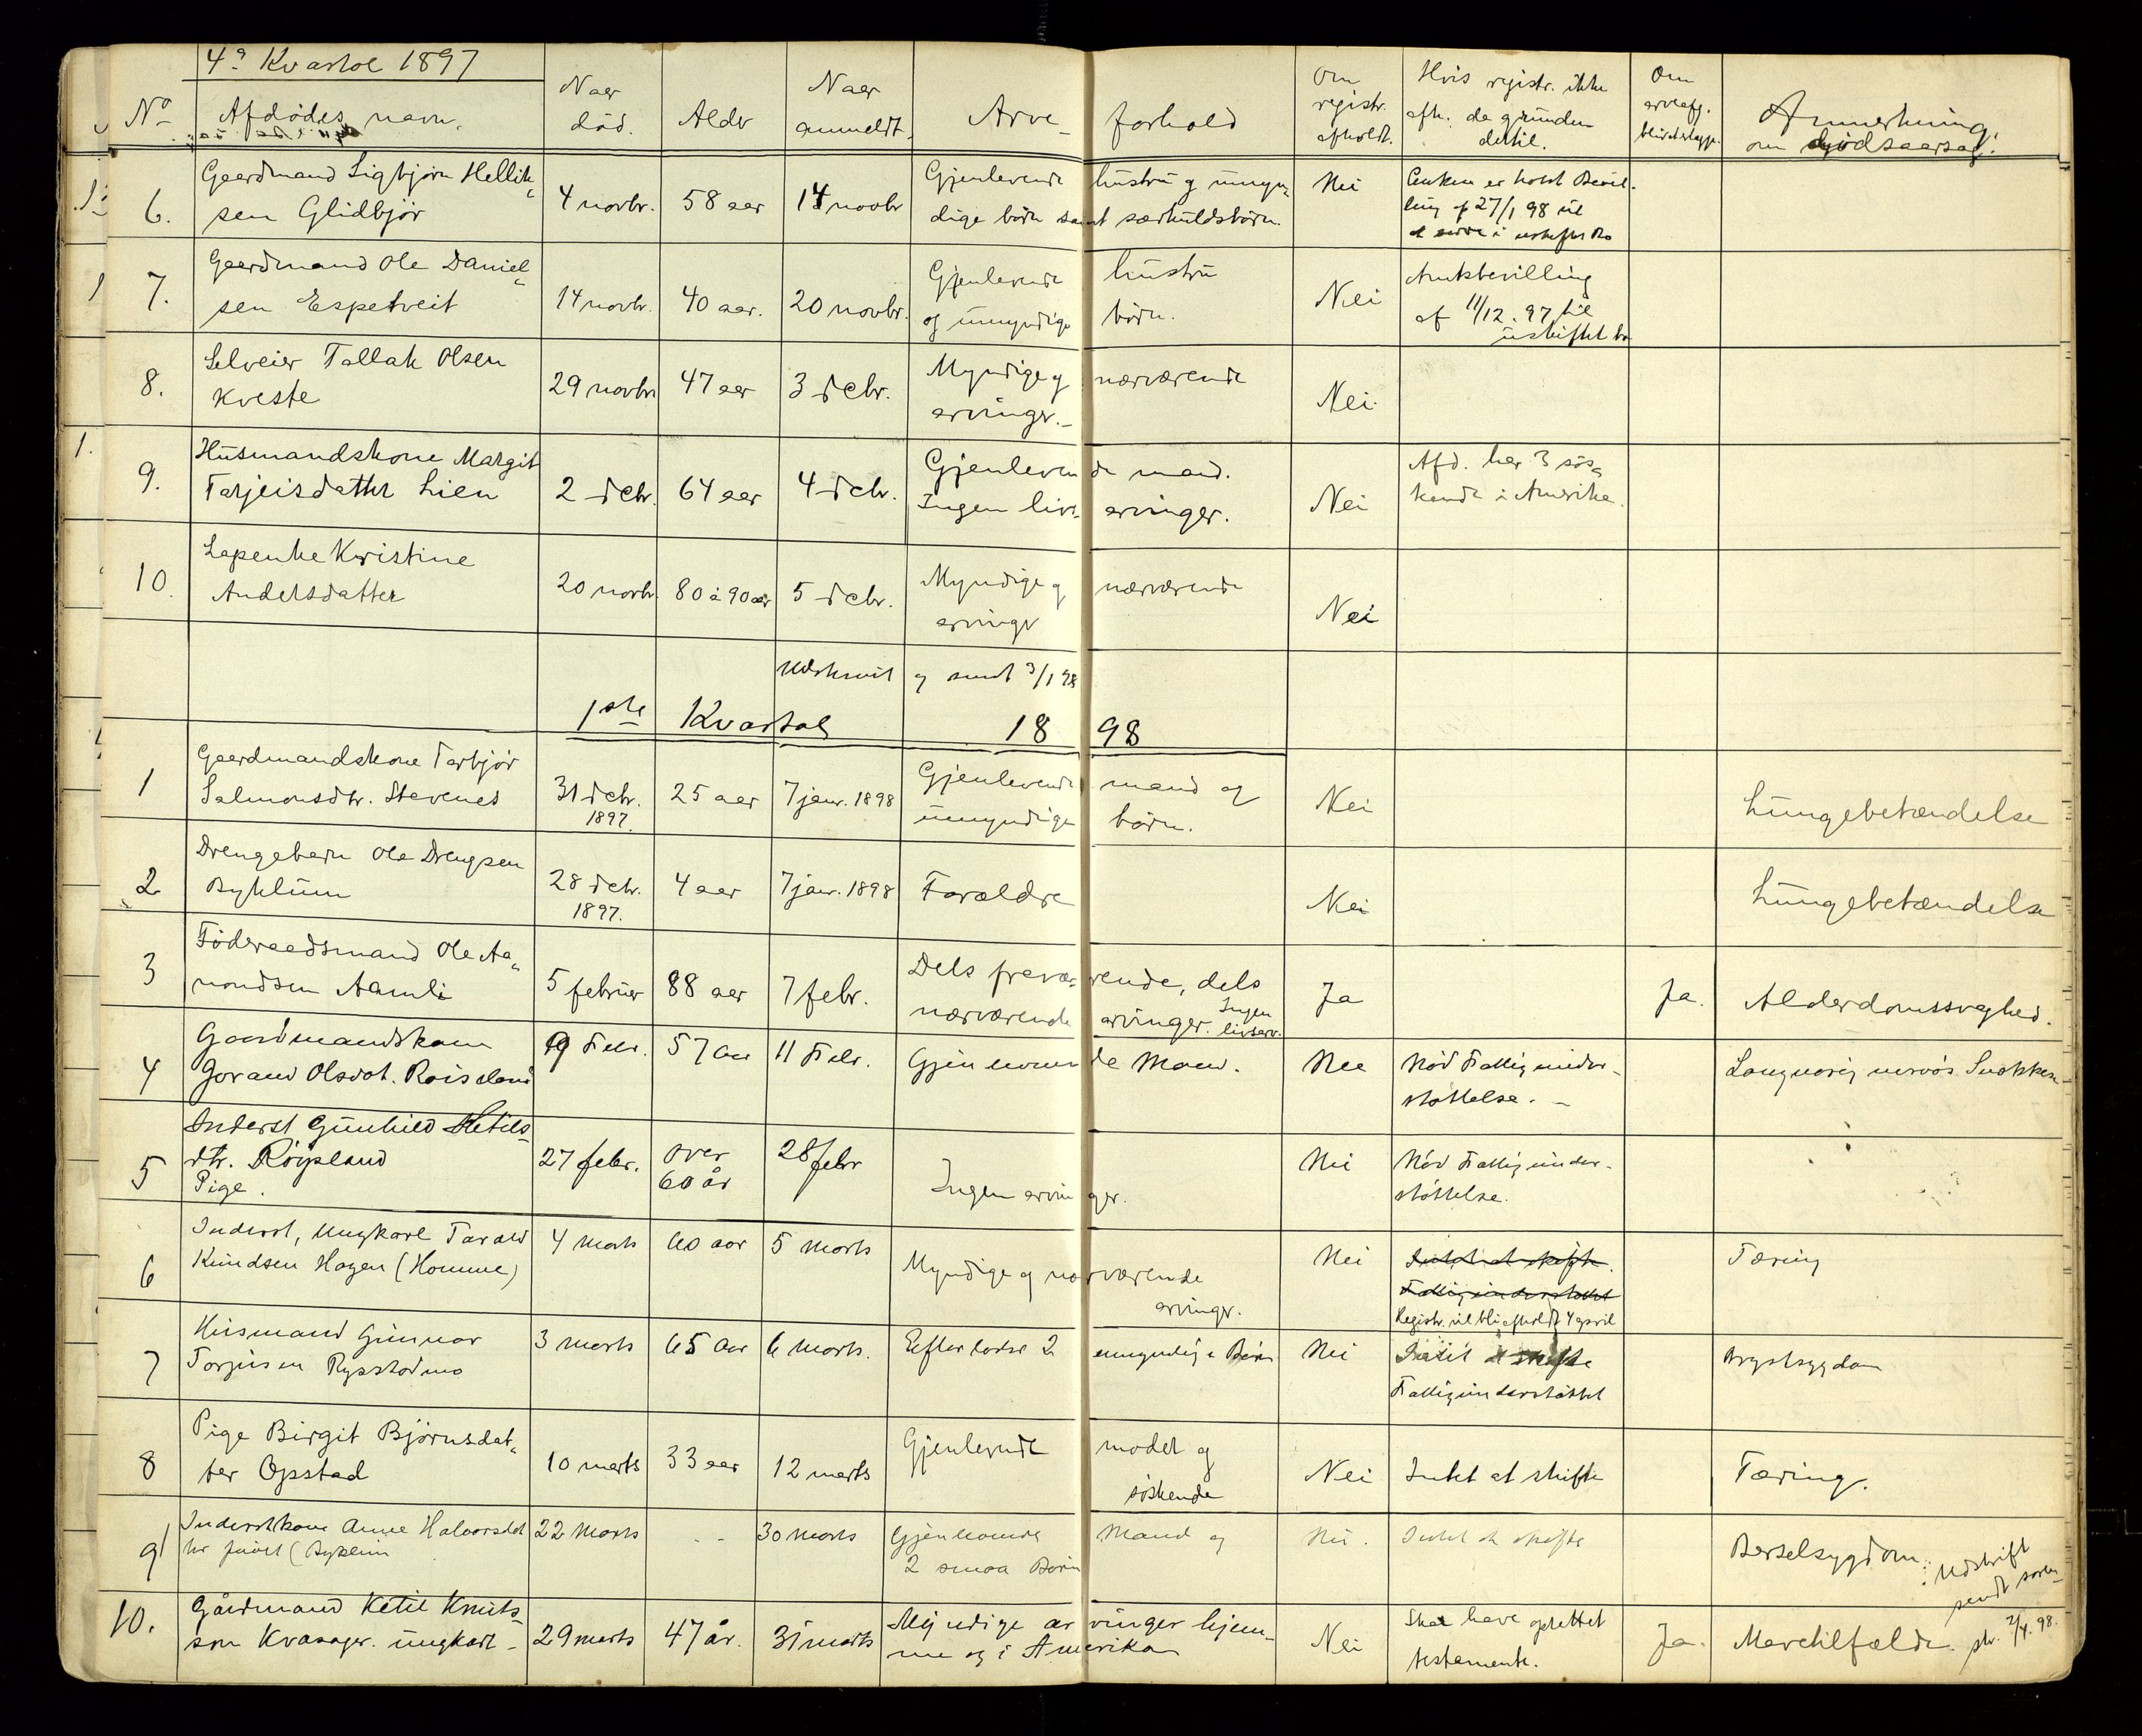 4de Kvartal 1897
No
Afdødes navn.
Naar
død.
Alder
Naar
anmeldt.
Arve-
forhold
Om
registr.
afholdt.
Hvis registr. ikke
afh. da grunden
dertil.
Om
Anmerkning.
om dødsaarsag.
6.
Gaardmand Sigbjørn Hellik-
sen Glidbjør
4 novbr.
58 aar
14 novbr
Gjenlevende hustru og umyn-
dige børn samt særkuldsbørn.
Nei
Enken er holdt Bevil-
ling af 27/1 98 til
at sidde i uskiftet Bo
7.
Gaardmand Ole Daniel-
sen Espetveit
14 novbr.
40 aar.
20 novbr.
Gjenlevende hustru
og umyndige børn.
Nei
Amtsbevilling
af 11/12. 97 til
uskiftet bo
8.
Selveier Tallak Olsen
Kveste
29 novbr
47 aar
3 decbr.
Myndige og nærværende
arvinger.-
Nei.
9.
Husmandskone Margit
Tarjeisdatter Lien
2 decbr.
64 aar
4 decbr.
Gjenlevende mand.
Ingen livsarvinger.
Nei
Afd. har 3 søs-
kende i Amerika.
10.
Lapenke Kristine
Andersdatter
20 novbr.
80 à 90 aar
5 decbr.
Myndige og nærværende
arvinger
Nei
Udskrevet og sendt 3/1 98
1ste Kvartal 1898
1
Gaardmandskone Tarbjør
Salmonsdtr. Stavenes
31 decbr.
1897.
25 aar
7 janr. 1898
Gjenlevende mand og
umyndige børn.
Nei
Lungebetændelse
2
Drengebarn Ole Drengsen
Byklum
28 decbr.
1897.
4 aar
7 janr. 1898
Forældre
Nei
Lungebetændelse
3
Føderaadsmand Ole Aa-
nondsen Aamli
5 februar
88 aar
7 febr.
Dels fraværende, dels
nærværende arvinger. Ingen
livsarv.
Ja
Ja.
Alderdomssvaghed.
4
Gaardmandskone
Gorand Olsdot. Roiseland
9 Febr.
57 Aar
11 Febr.
Gjenlevende Mand.
Nei
Nød Fattigunder-
støttelse. -
Langvarig nervøs Snokken
5
Inderst Gunhild Ketils-
dtr. Røysland
Pige.
27 febr.
over
60 år
28 febr
Ingen arvinger.
Nei
Nød Fattigunder-
støttelse.
6
Inderst, Ungkarl Tarald
Knudsen Hagen (Homme)
4 marts
60 aar
5 marts
Myndige og nærværende
arvinger.
Nei
Intet at skifte.
Fattigunderstøttet
Registr. vil bli afholdt 4 april
Tæring
7
Husmand Gunnar
Torjusen Rysstadmo
3 marts
65 Aar
6 marts.
Efterlader 2 umyndige Børn
Nei
Intet at skifte
Fattigunderstøttet
Brystsygdom
8
Pige Birgit Bjørnsdat-
ter Opstad
10 marts
33 aar
12 marts
Gjenlevende moder og
søskende
Nei
Intet at skifte
Tæring.
9
Inderstkone Anne Halvorsdat
22 Marts
- -
30 Marts
Gjenlevende Mand og
2 smaa Børn
Nei.
Intet at skifte
Barselsygdom.
Udskrift
sendt soren-
skr. 2/4. 98.
10.
Gårdmand Ketil Knuts-
son Kvasager. ungkarl-
29 marts
47 år.
31 marts
Myndige arvinger hjem-
me og i Amerika
Nei
Skal have oprettet
testamente.
Ja.
Mavetilfælde.